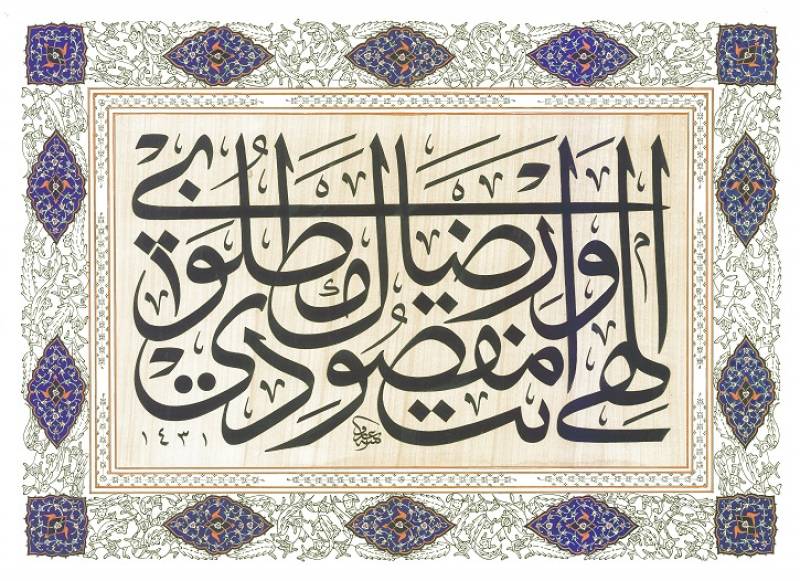 إلهي أنت مقصودي ورضاك مطلوبي
١٤٣١